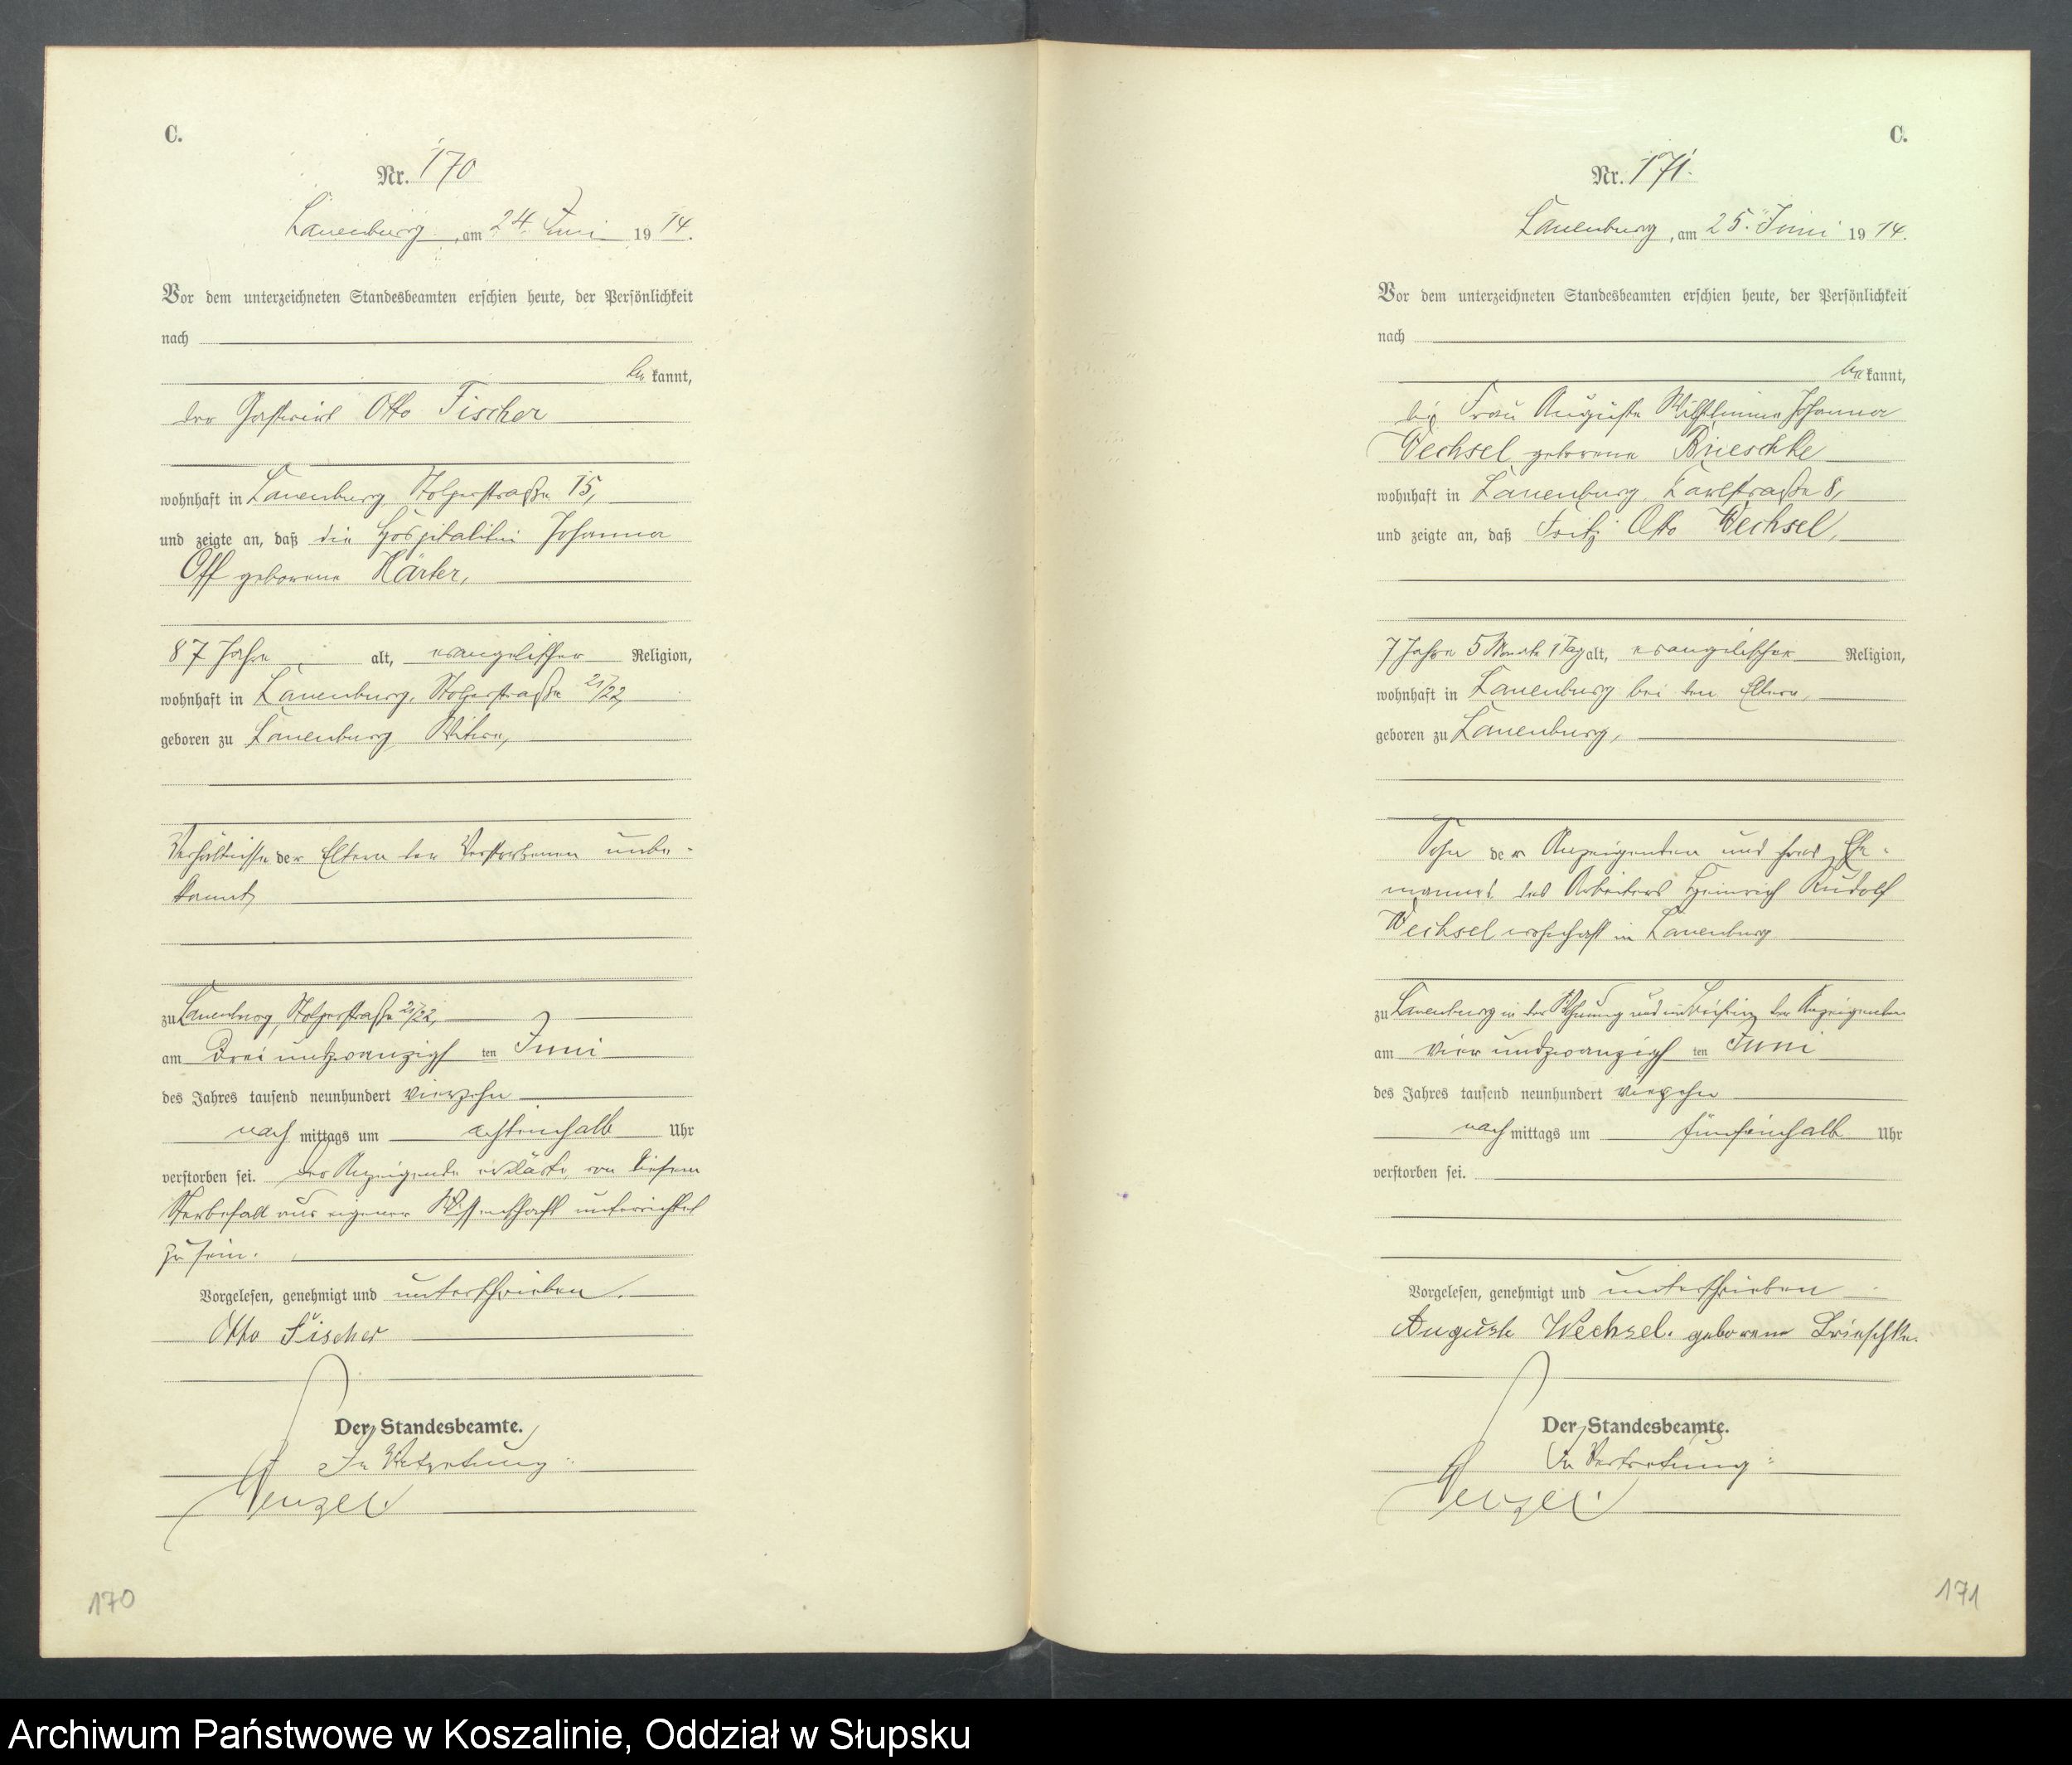 C.
Nr. 170
Lauenburg, am 24. Juni 1914.
Vor dem unterzeichneten Standesbeamten erschien heute, der Persönlichkeit
nach
be kannt,
der Gastwirt Otto Fischer
wohnhaft in Lauenburg, Stolperstraße 15,
und zeigte an, daß die Hospitalitin Johanna
Off geborene Härter,
87 Jahre alt, evangelischer Religion,
wohnhaft in Lauenburg, Stolperstraße 21/22,
geboren zu Lauenburg, Witwe,
Verhältnisse der Eltern der Verstorbenen unbe-
kannt,
zu Lauenburg, Stolperstraße 21/22,
am drei undzwanzigsten Juni
des Jahres tausend neunhundert vierzehn
nach mittags um achteinhalb Uhr
verstorben sei. Der Anzeigende erklärte, von diesem
Sterbefall aus eigener Wissenschaft unterrichtet
zu sein.
Vorgelesen, genehmigt und unterschrieben.
Otto Fischer
Der Standesbeamte.
In Vertretung:
Wenzel.
170
C.
Nr. 171.
Lauenburg, am 25. Juni 1914.
Vor dem unterzeichneten Standesbeamten erschien heute, der Persönlichkeit
nach
be kannt,
die Frau Auguste Wilhelmine Johanna
Wechsel geborene Brieschke
wohnhaft in Lauenburg, Karlstraße 8,
und zeigte an, daß Fritz Otto Wechsel,
7 Jahre 5 Monate 1 Tag alt, evangelischer Religion,
wohnhaft in Lauenburg bei den Eltern,
geboren zu Lauenburg,
Sohn der Anzeigenden und ihres Ehe-
mannes des Arbeiters Heinrich Rudolf
Wechsel wohnhaft in Lauenburg
zu Lauenburg in der Wohnung und im Beisein der Anzeigenden
am vier undzwanzigsten Juni
des Jahres tausend neunhundert vierzehn
nach mittags um fünfeinhalb Uhr
verstorben sei.
Vorgelesen, genehmigt und unterschrieben
Auguste Wechsel. geborene Brieschke.
Der Standesbeamte.
In Vertretung:
Wenzel.
171
Archiwum Państwowe w Koszalinie, Oddział w Słupsku